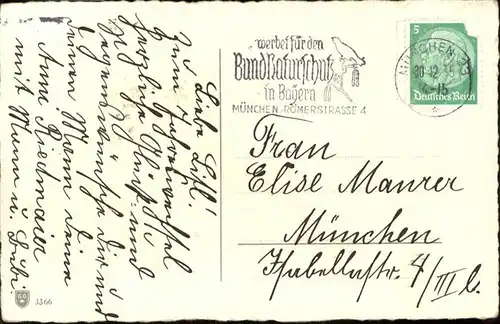 Liebe Lisl!
Zum Jahreswechsel
herzliche Glück- und
Segenswünsche Dir und
Deinem Mann
Anna Riedmaier
mit Mann u.
werbet für den
Bund Naturschutz
in Bayern
MÜNCHEN-RÖMERSTRASSE 4
MÜNCHEN
30.12.
5
Deutsches Reich
Frau
Elise Maurer
München
Isabellastr. 4/III l.
3366